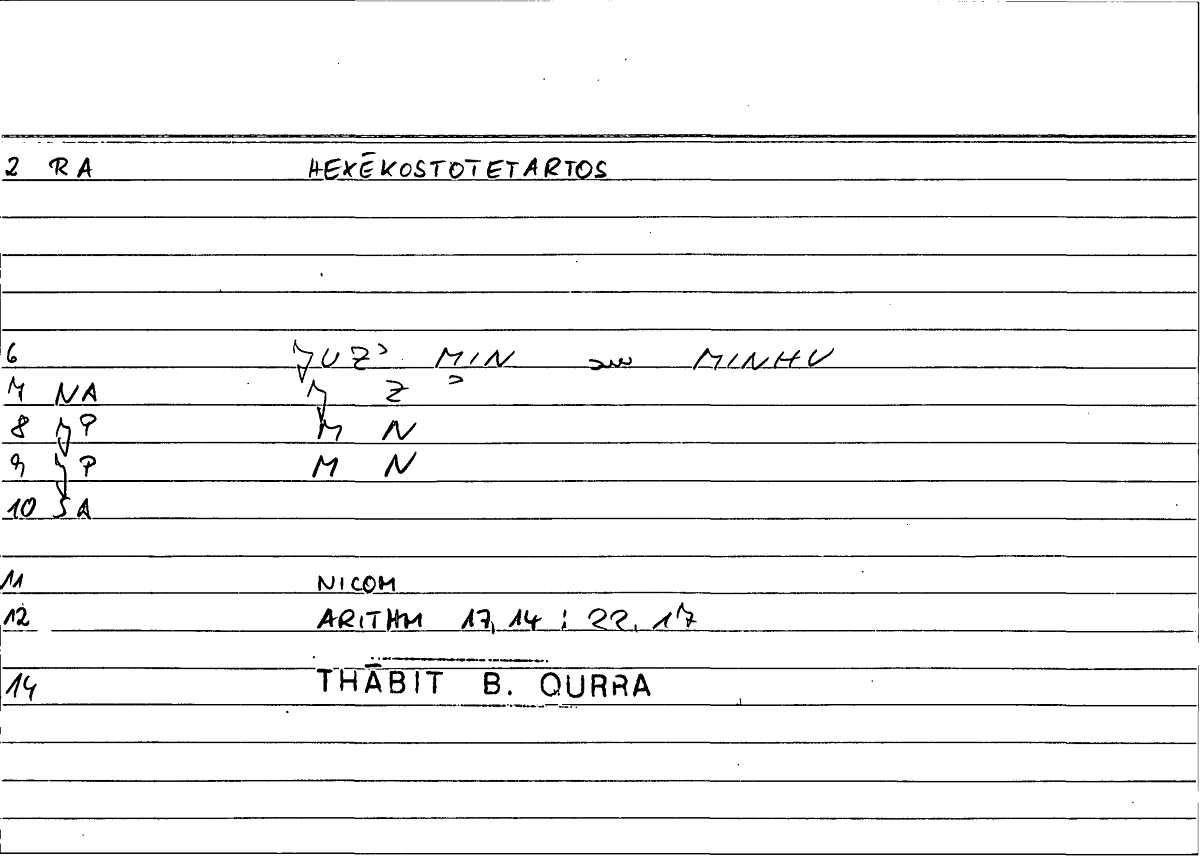 2 RA HEXĒKOSTOTETARTOS
6 ǦUZʾ MIN MINHU
7 NA Ǧ Z ʾ
8 ǦP M N
9 ǦP M N
10 SA
11 NICOM
12 ARITHM 17,14 ; 22,17
14 THĀBIT B. QURRA